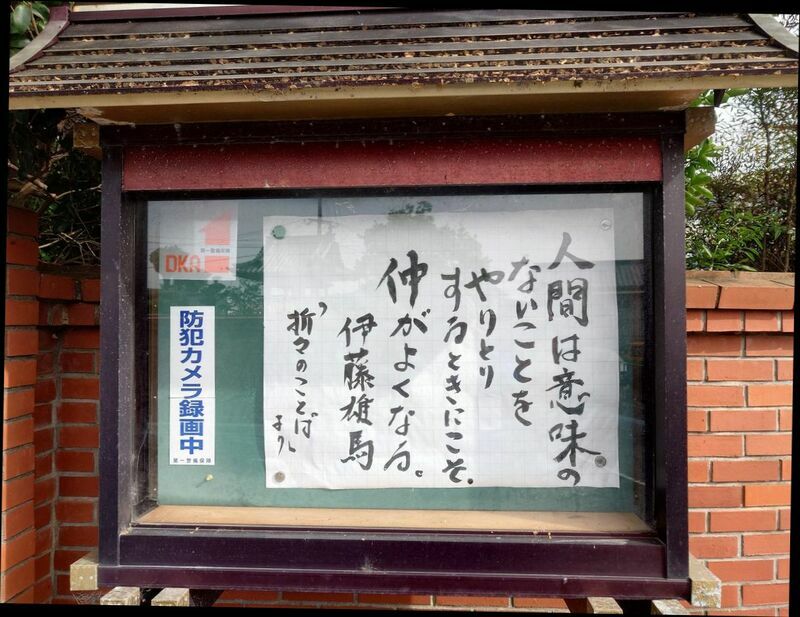 人間は意味の
ないことを
やりとり
するときにこそ、
仲がよくなる。
伊藤雄馬
「折々のことば」
より
DKA
第一警備保障
防犯カメラ録画中
第一警備保障